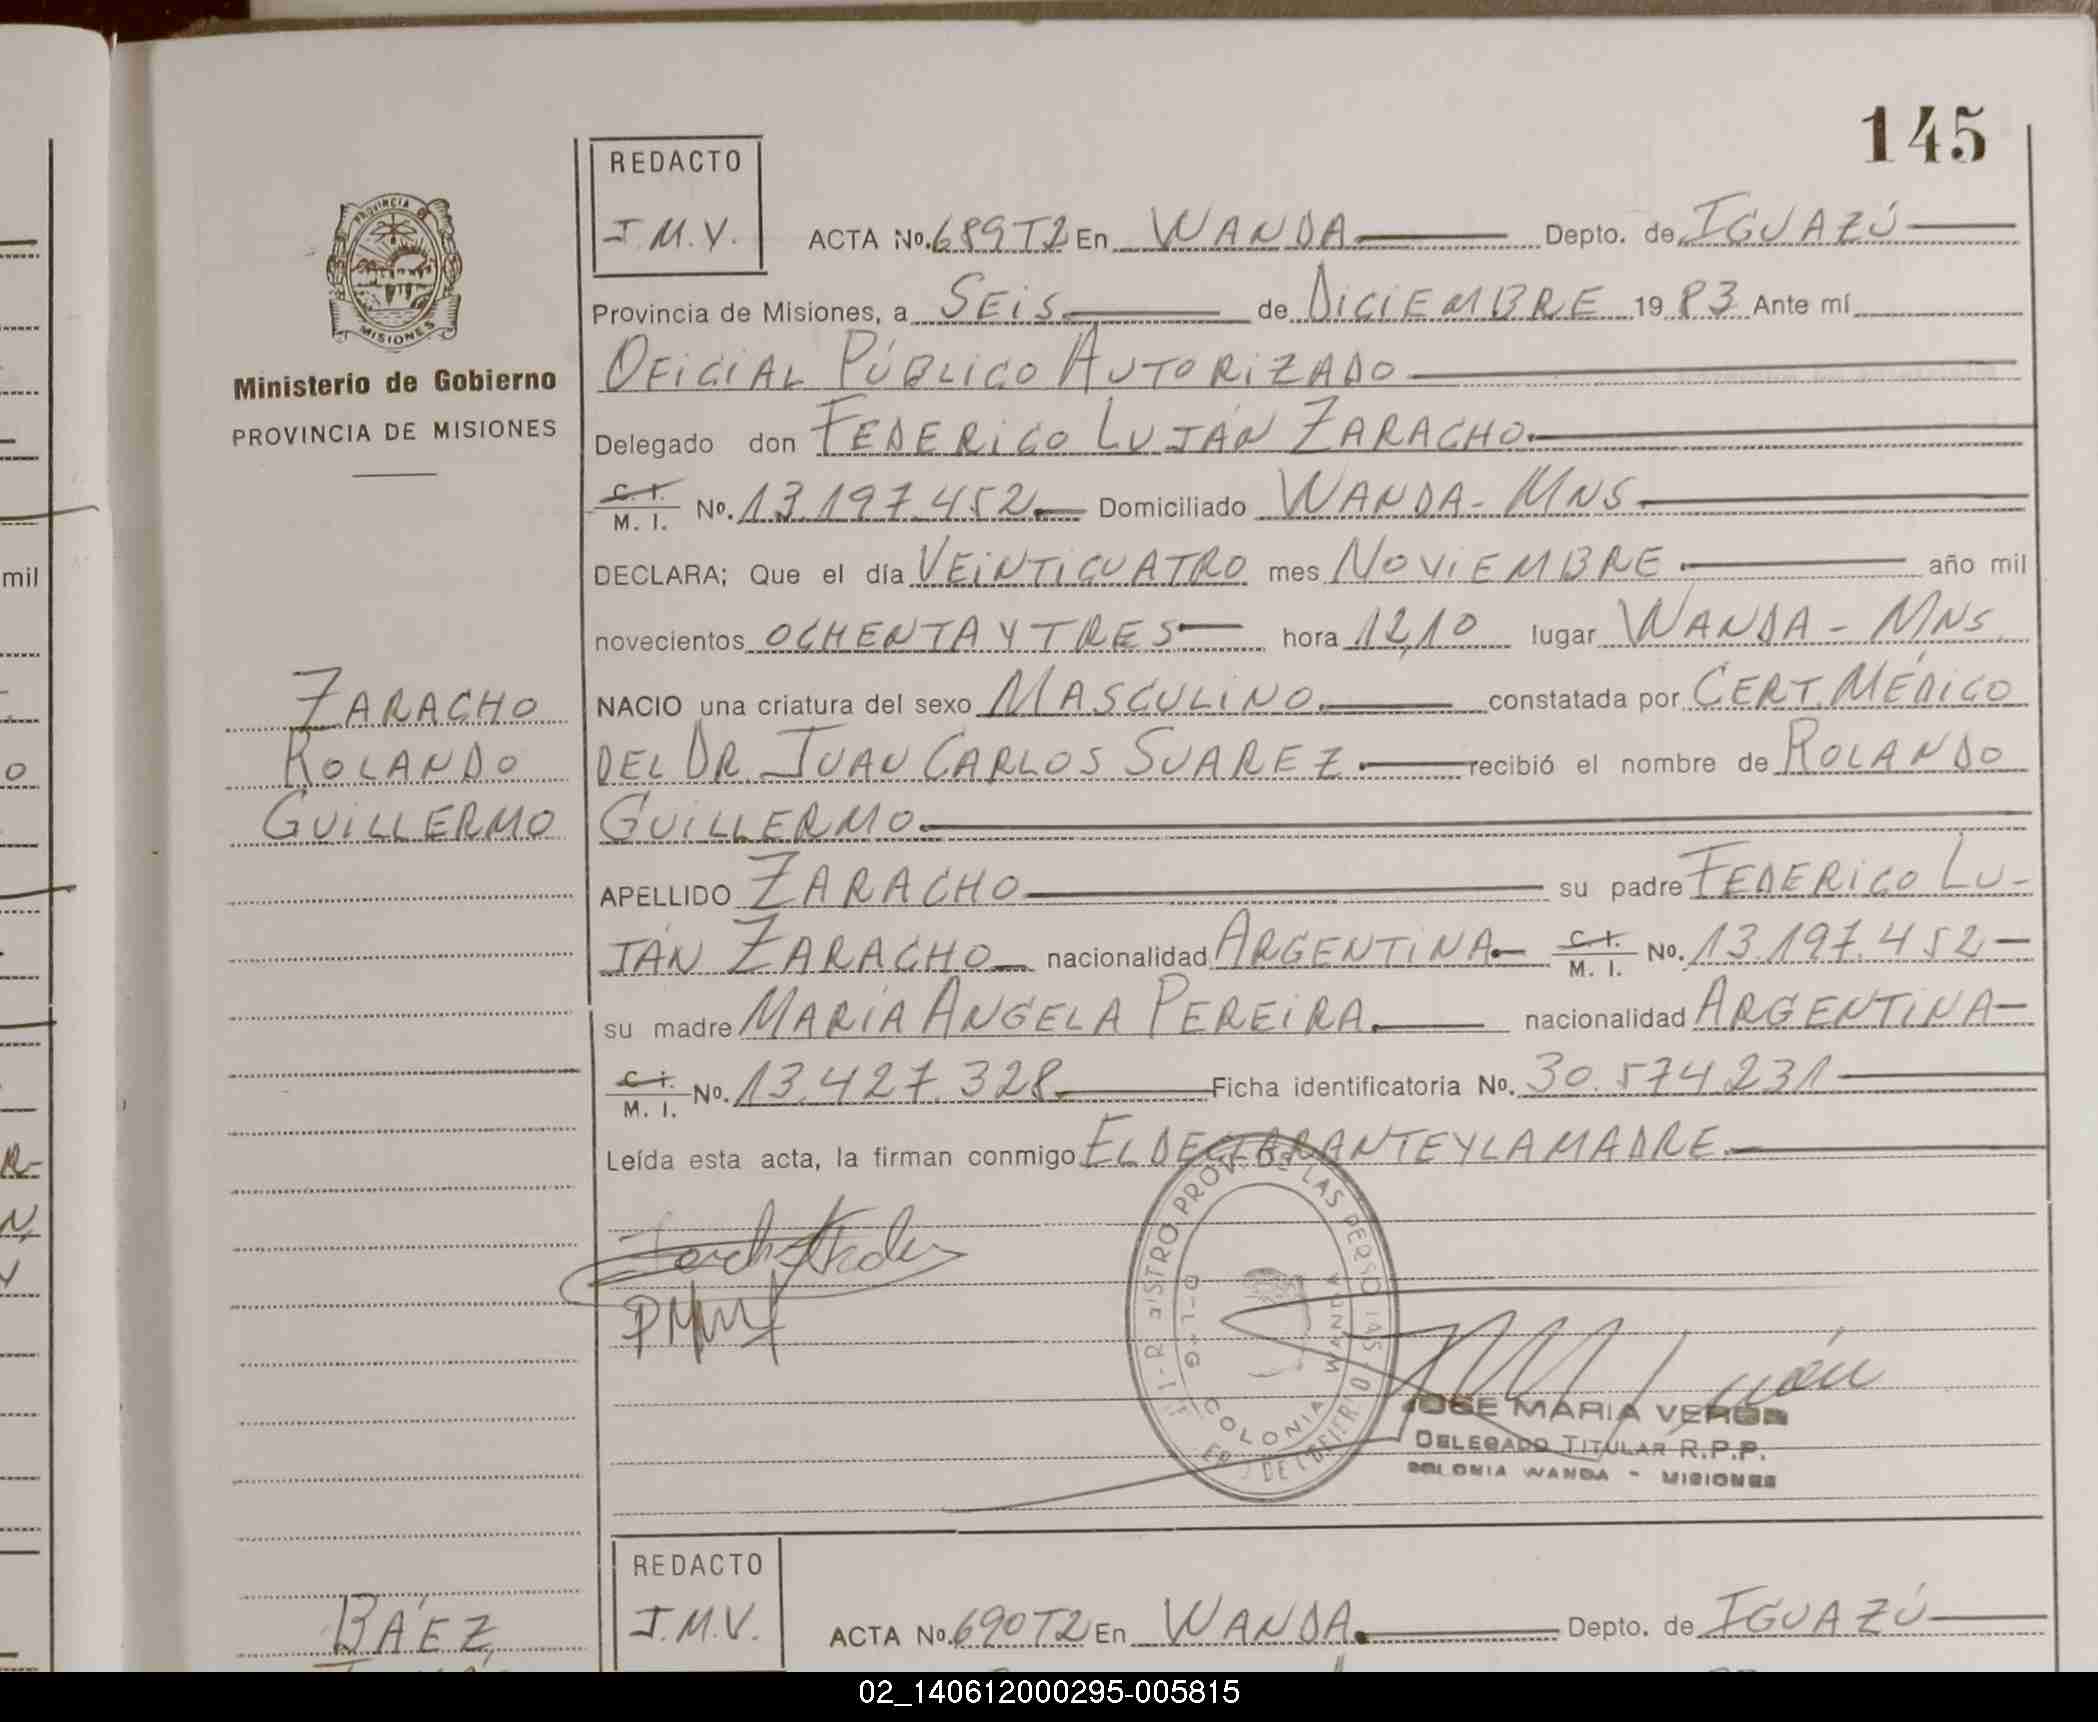 145
REDACTO
J.M.V.
ACTA Nº. 689T2 En WANDA Depto. de IGUAZÚ
PROVINCIA DE
MISIONES
Ministerio de Gobierno
PROVINCIA DE MISIONES
Provincia de Misiones, a SEIS de DICIEMBRE 1983 Ante mí
OFICIAL PÚBLICO AUTORIZADO
Delegado don FEDERICO LUJÁN ZARACHO
C. I. / M. I. Nº. 13.197.452 Domiciliado WANDA - MNS
DECLARA; Que el día VEINTICUATRO mes NOVIEMBRE año mil
novecientos OCHENTA Y TRES hora 12,10 lugar WANDA - MNS
ZARACHO
ROLANDO
GUILLERMO
NACIO una criatura del sexo MASCULINO constatada por CERT. MÉDICO
DEL DR. JUAN CARLOS SUAREZ recibió el nombre de ROLANDO
GUILLERMO
APELLIDO ZARACHO su padre FEDERICO LU-
JÁN ZARACHO nacionalidad ARGENTINA C. I. / M. I. Nº. 13.197.452
su madre MARÍA ANGELA PEREIRA nacionalidad ARGENTINA
C. I. / M. I. Nº. 13.427.328 Ficha identificatoria Nº. 30.574.231
Leída esta acta, la firman conmigo EL DECLARANTE Y LA MADRE
COLONIA WANDA
JOSE MARIA VERON
DELEGADO TITULAR R.P.P.
COLONIA WANDA - MISIONES
REDACTO
J.M.V.
ACTA Nº. 690T2 En WANDA Depto. de IGUAZÚ
BÁEZ
mil
02_140612000295-005815